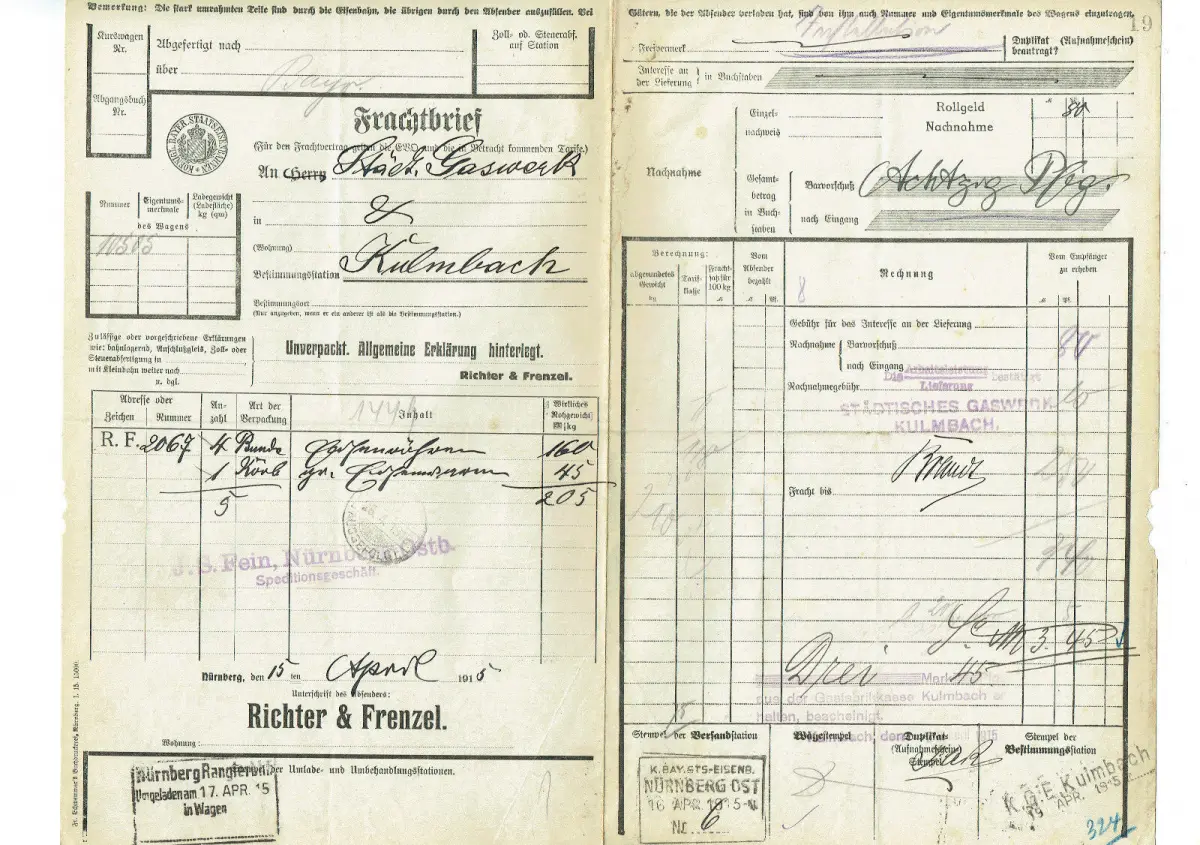 Bemerkung: Die stark umrahmten Teile sind durch die Eisenbahn, die übrigen durch den Absender auszufüllen. Bei Gütern, die der Absender verladen hat, sind von ihm auch Nummer und Eigentumsmerkmale des Wagens einzutragen.
19
Kurswagen
Nr.
Abgangsbuch
Nr.
Abgefertigt nach
über
Zoll- od. Steuerabf.
auf Station
KÖNIGL. BAYER. STAATSEISENBAHNEN
Frachtbrief
(Für den Frachtvertrag gelten die EVO. und die in Betracht kommenden Tarife.)
An Herrn Städt. Gaswerk
in
(Wohnung)
Bestimmungsstation Kulmbach
Bestimmungsort
(Nur anzugeben, wenn er ein anderer ist als die Bestimmungsstation.)
Nummer
Eigentums-
merkmale
Ladegewicht
(Ladefläche)
kg (qm)
des Wagens
10505
Zulässige oder vorgeschriebene Erklärungen
wie: bahnlagernd, Anschlußgleis, Zoll- oder
Steuerabfertigung in
mit Kleinbahn weiter nach
u. dgl.
Unverpackt. Allgemeine Erklärung hinterlegt.
Richter & Frenzel.
Adresse oder
Zeichen
Nummer
An-
zahl
Art der
Verpackung
Inhalt
Wirkliches
Rohgewicht
kg
R. F. 2067 4 Bunde 160
1 Korb 45
5 205
J. S. Fein, Nürnberg Ostb.
Speditionsgeschäft.
Nürnberg, den 15 ten April 1915
Unterschrift des Absenders:
Richter & Frenzel.
Wohnung:
der Umlade- und Umbehandlungsstationen.
Nürnberg Rangierbhf
Umgeladen am 17. APR. 15
in Wagen
Freivermerk
Duplikat (Aufnahmeschein)
beantragt?
Interesse an
der Lieferung
in Buchstaben
Einzel-
nachweis
Rollgeld
Nachnahme
80
Nachnahme
Gesamt-
betrag
in Buch-
staben
Barvorschuß Achtzig Pfg.
nach Eingang
Berechnung:
abgerundetes
Gewicht
kg
Tarif-
klasse
Fracht-
satz für
100 kg
Vom
Absender
bezahlt
Rechnung
Vom Empfänger
zu erheben
8
Gebühr für das Interesse an der Lieferung
Nachnahme
Barvorschuß
80
nach Eingang
Nachnahmegebühr
10
Die Arbeitsleistung bestätigt
Lieferung
STÄDTISCHES GASWERK
KULMBACH.
Fracht bis
M 3.45
Drei 45
Mark
aus der Gasfabrikkasse Kulmbach er
halten, bescheinigt.
Kulmbach, den 1915
Stempel der Versandstation
Wägestempel
Duplikat-
(Aufnahmeschein)
Stempel
Stempel der
Bestimmungsstation
K. BAY. STS-EISENB.
NÜRNBERG OST
16 APR. 1915-N
Nr. 6
K. G. E. Kulmbach
19 APR. 1915
324